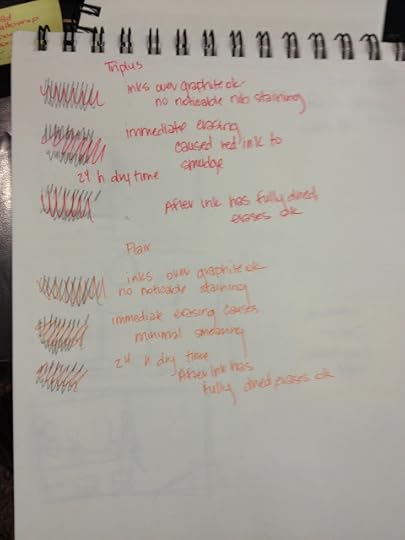 Triplus
inks over graphite ok
no noticable nib staining
immediate erasing
caused red ink to
smudge
24 h dry time
After ink has fully dried,
erases ok
Flair
inks over graphite ok
no noticable staining
immediate erasing causes
minimal smearing
24 h dry time
After ink has
fully dried, erases ok